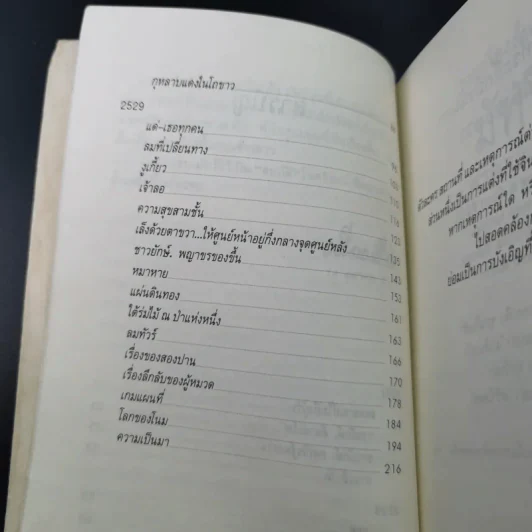 กุหลาบแดงในโถขาว
2529
แด่-เธอทุกคน
ลมที่เปลี่ยนทาง
งูเกี้ยว
เจ้าลอ
ความสุขสามชั้น 123
เล็งด้วยตาขวา...ให้ศูนย์หน้าอยู่กึ่งกลางจุดศูนย์หลัง 135
ชาวยักษ์. พญาขรของขึ้น 143
หมาหาย 153
แผ่นดินทอง 161
ใต้ร่มไม้ ณ ป่าแห่งหนึ่ง 163
ลมทัวร์ 166
เรื่องของสองปาน 170
เรื่องลึกลับของผู้หมวด 178
เกมแผนที่ 184
โลกของโนม 194
ความเป็นมา 216
ตัวละคร สถานที่ และเหตุการณ์
ส่วนหนึ่งเป็นการแต่งที่ใช้จิน
หากเหตุการณ์ใด
ไปสอดคล้อง
ย่อมเป็นการบังเอิญที่